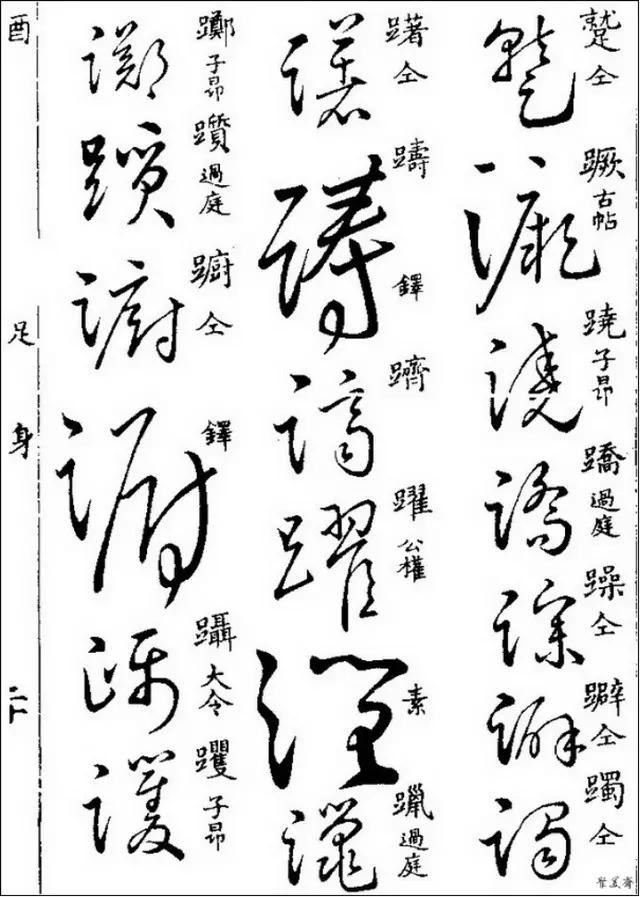 蹵仝
蹶古帖
蹺子昂
蹻過庭
躁仝
躃仝
躅仝
躇仝
躊
鐸
躋
躍公權
素
躐過庭
躑子昂
躓過庭
躕仝
鐸
躡大令
躩子昂
酉
足
身
二十